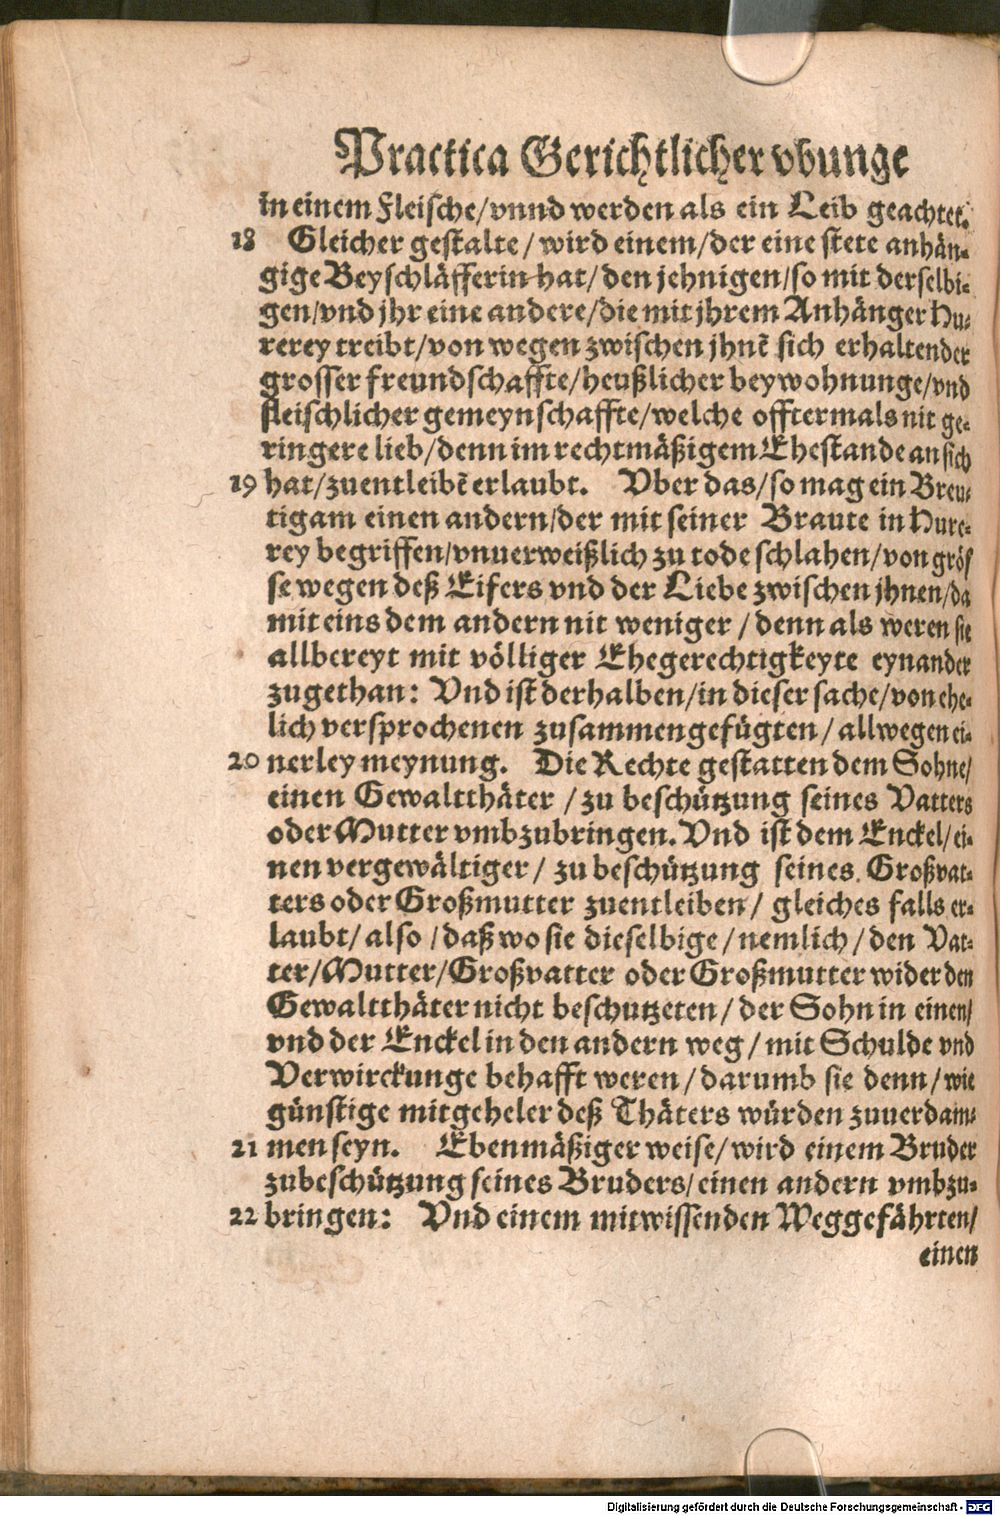 Practica Gerichtlicher vbunge
in einem Fleische/vnnd werden als ein Leib geachtet.
18 Gleicher gestalte/wird einem/der eine stete anhän-
gige Beyschläfferin hat/den jehnigen/so mit derselbi-
gen/vnd jhr eine andere/die mit jhrem Anhänger Hu-
rerey treibt/von wegen zwischen jhnē sich erhaltender
grosser freundschaffte/heußlicher beywohnunge/vnd
fleischlicher gemeynschaffte/welche offtermals nit ge-
ringere lieb/denn im rechtmäßigem Ehestande an sich
19 hat/zuentleibē erlaubt. Vber das/so mag ein Breu-
tigam einen andern/der mit seiner Braute in Hure-
rey begriffen/vnuerweißlich zu tode schlahen/von grös
se wegen deß Eifers vnd der Liebe zwischen jhnen/da
mit eins dem andern nit weniger/denn als weren sie
allbereyt mit völliger Ehegerechtigkeyte eynander
zugethan: Vnd ist derhalben/in dieser sache/von ehe-
lich versprochenen zusammengefügten/allwegen ei-
20 nerley meynung. Die Rechte gestatten dem Sohne/
einen Gewaltthäter/zu beschützung seines Vatters
oder Mutter vmbzubringen. Vnd ist dem Enckel/ei-
nen vergewältiger/zu beschützung seines Großvat-
ters oder Großmutter zuentleiben/gleiches falls er-
laubt/also/daß wo sie dieselbige/nemlich/den Vat-
ter/Mutter/Großvatter oder Großmutter wider den
Gewaltthäter nicht beschutzeten/der Sohn in einen/
vnd der Enckel in den andern weg/mit Schulde vnd
Verwirckunge behafft weren/darumb sie denn/wie
günstige mitgeheler deß Thäters würden zuuerdam-
21 men seyn. Ebenmäßiger weise/wird einem Bruder
zubeschützung seines Bruders/einen andern vmbzu-
22 bringen: Vnd einem mitwissenden Weggefährten/
einen
Digitalisierung gefördert durch die Deutsche Forschungsgemeinschaft - DFG